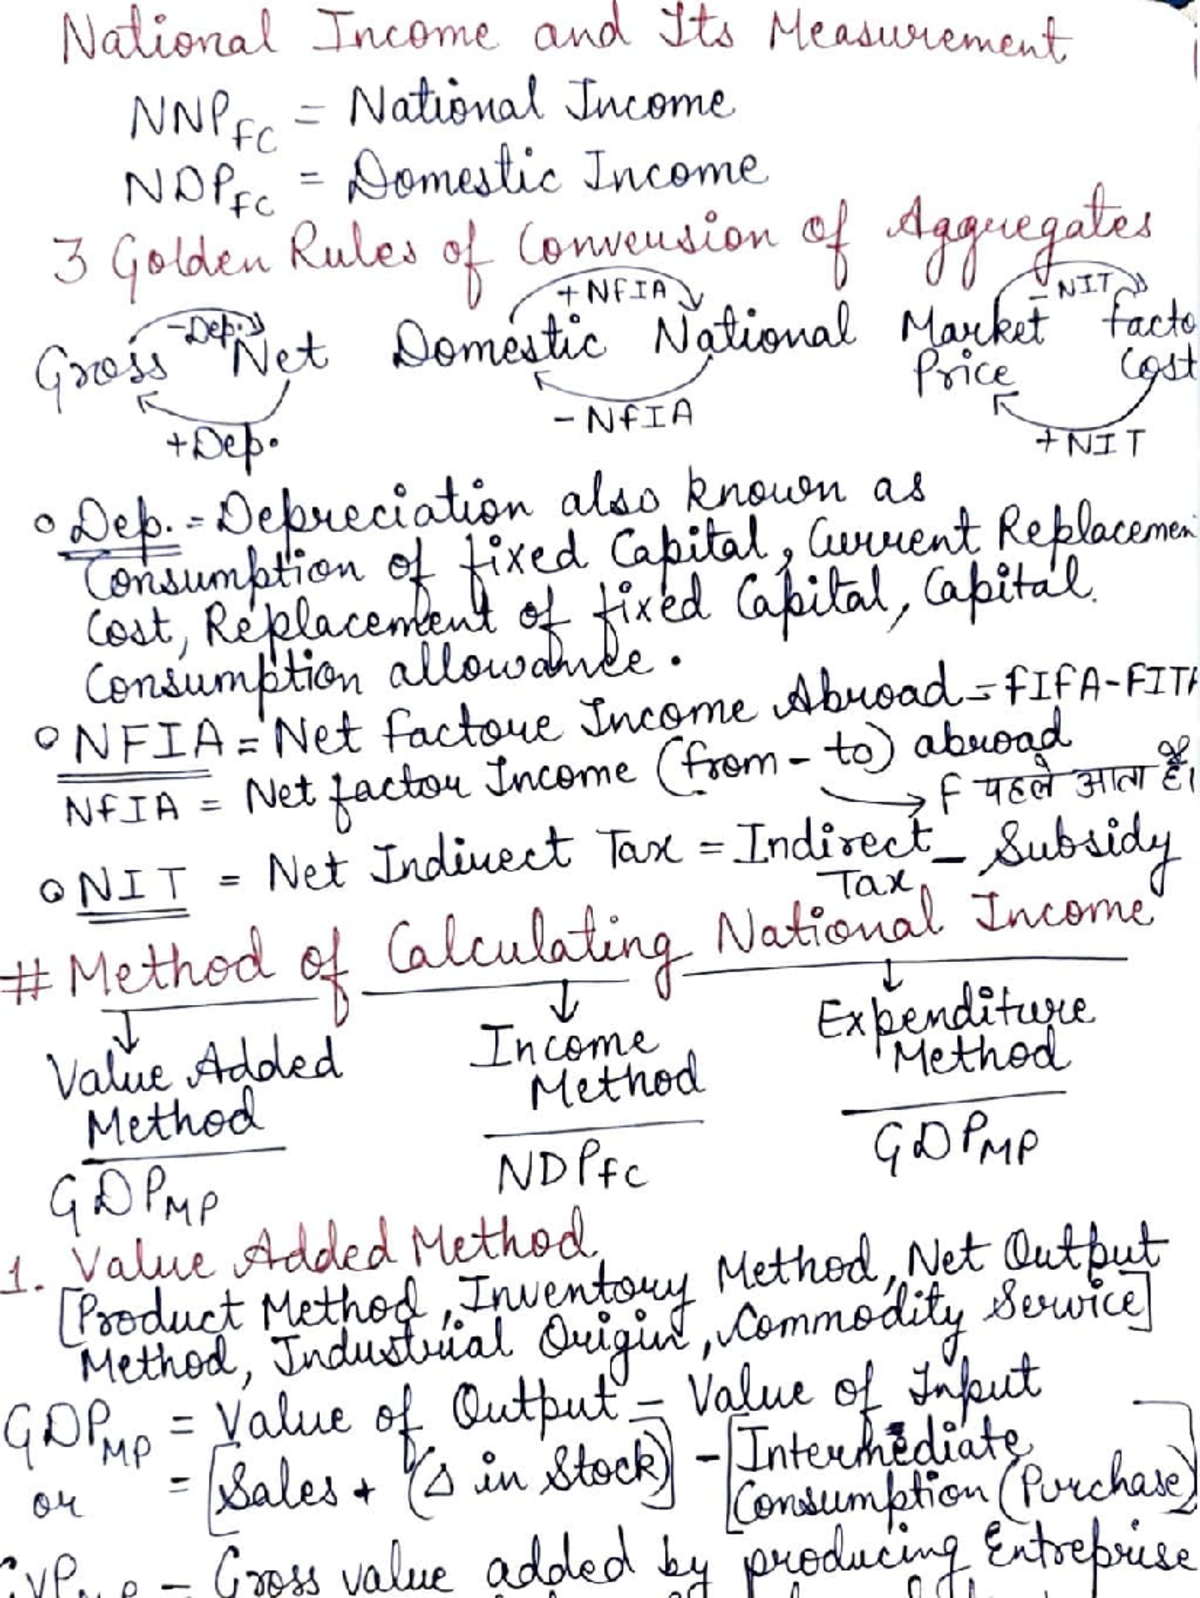 National Income and Its Measurement
NNPFC = National Income
NDPFC = Domestic Income
3 Golden Rules of Conversion of Aggregates
-Dep. +NFIA -NIT
Gross Net Domestic National Market Price Facto Cost
+Dep. -NFIA +NIT
Dep. = Depreciation also known as
Consumption of fixed Capital, Current Replacemen
Cost, Replacement of fixed Capital, Capital
Consumption allowance.
NFIA = Net factore Income Abroad = FIFA-FITA
NFIA = Net factor Income (from - to) abroad
F पहले आता है।
NIT = Net Indirect Tax = Indirect Tax - Subsidy
# Method of Calculating National Income
Value Added Method
GDPMP
Income Method
NDPFC
Expenditure Method
GDPMP
1. Value Added Method
[Product Method, Inventory Method, Net Output
Method, Industrial Origin, Commodity Service]
GDPMP = Value of Output - Value of Input
or = [Sales + (Δ in Stock)] - [Intermediate Consumption (Purchase)]
- Gross value added by producing Entreprise